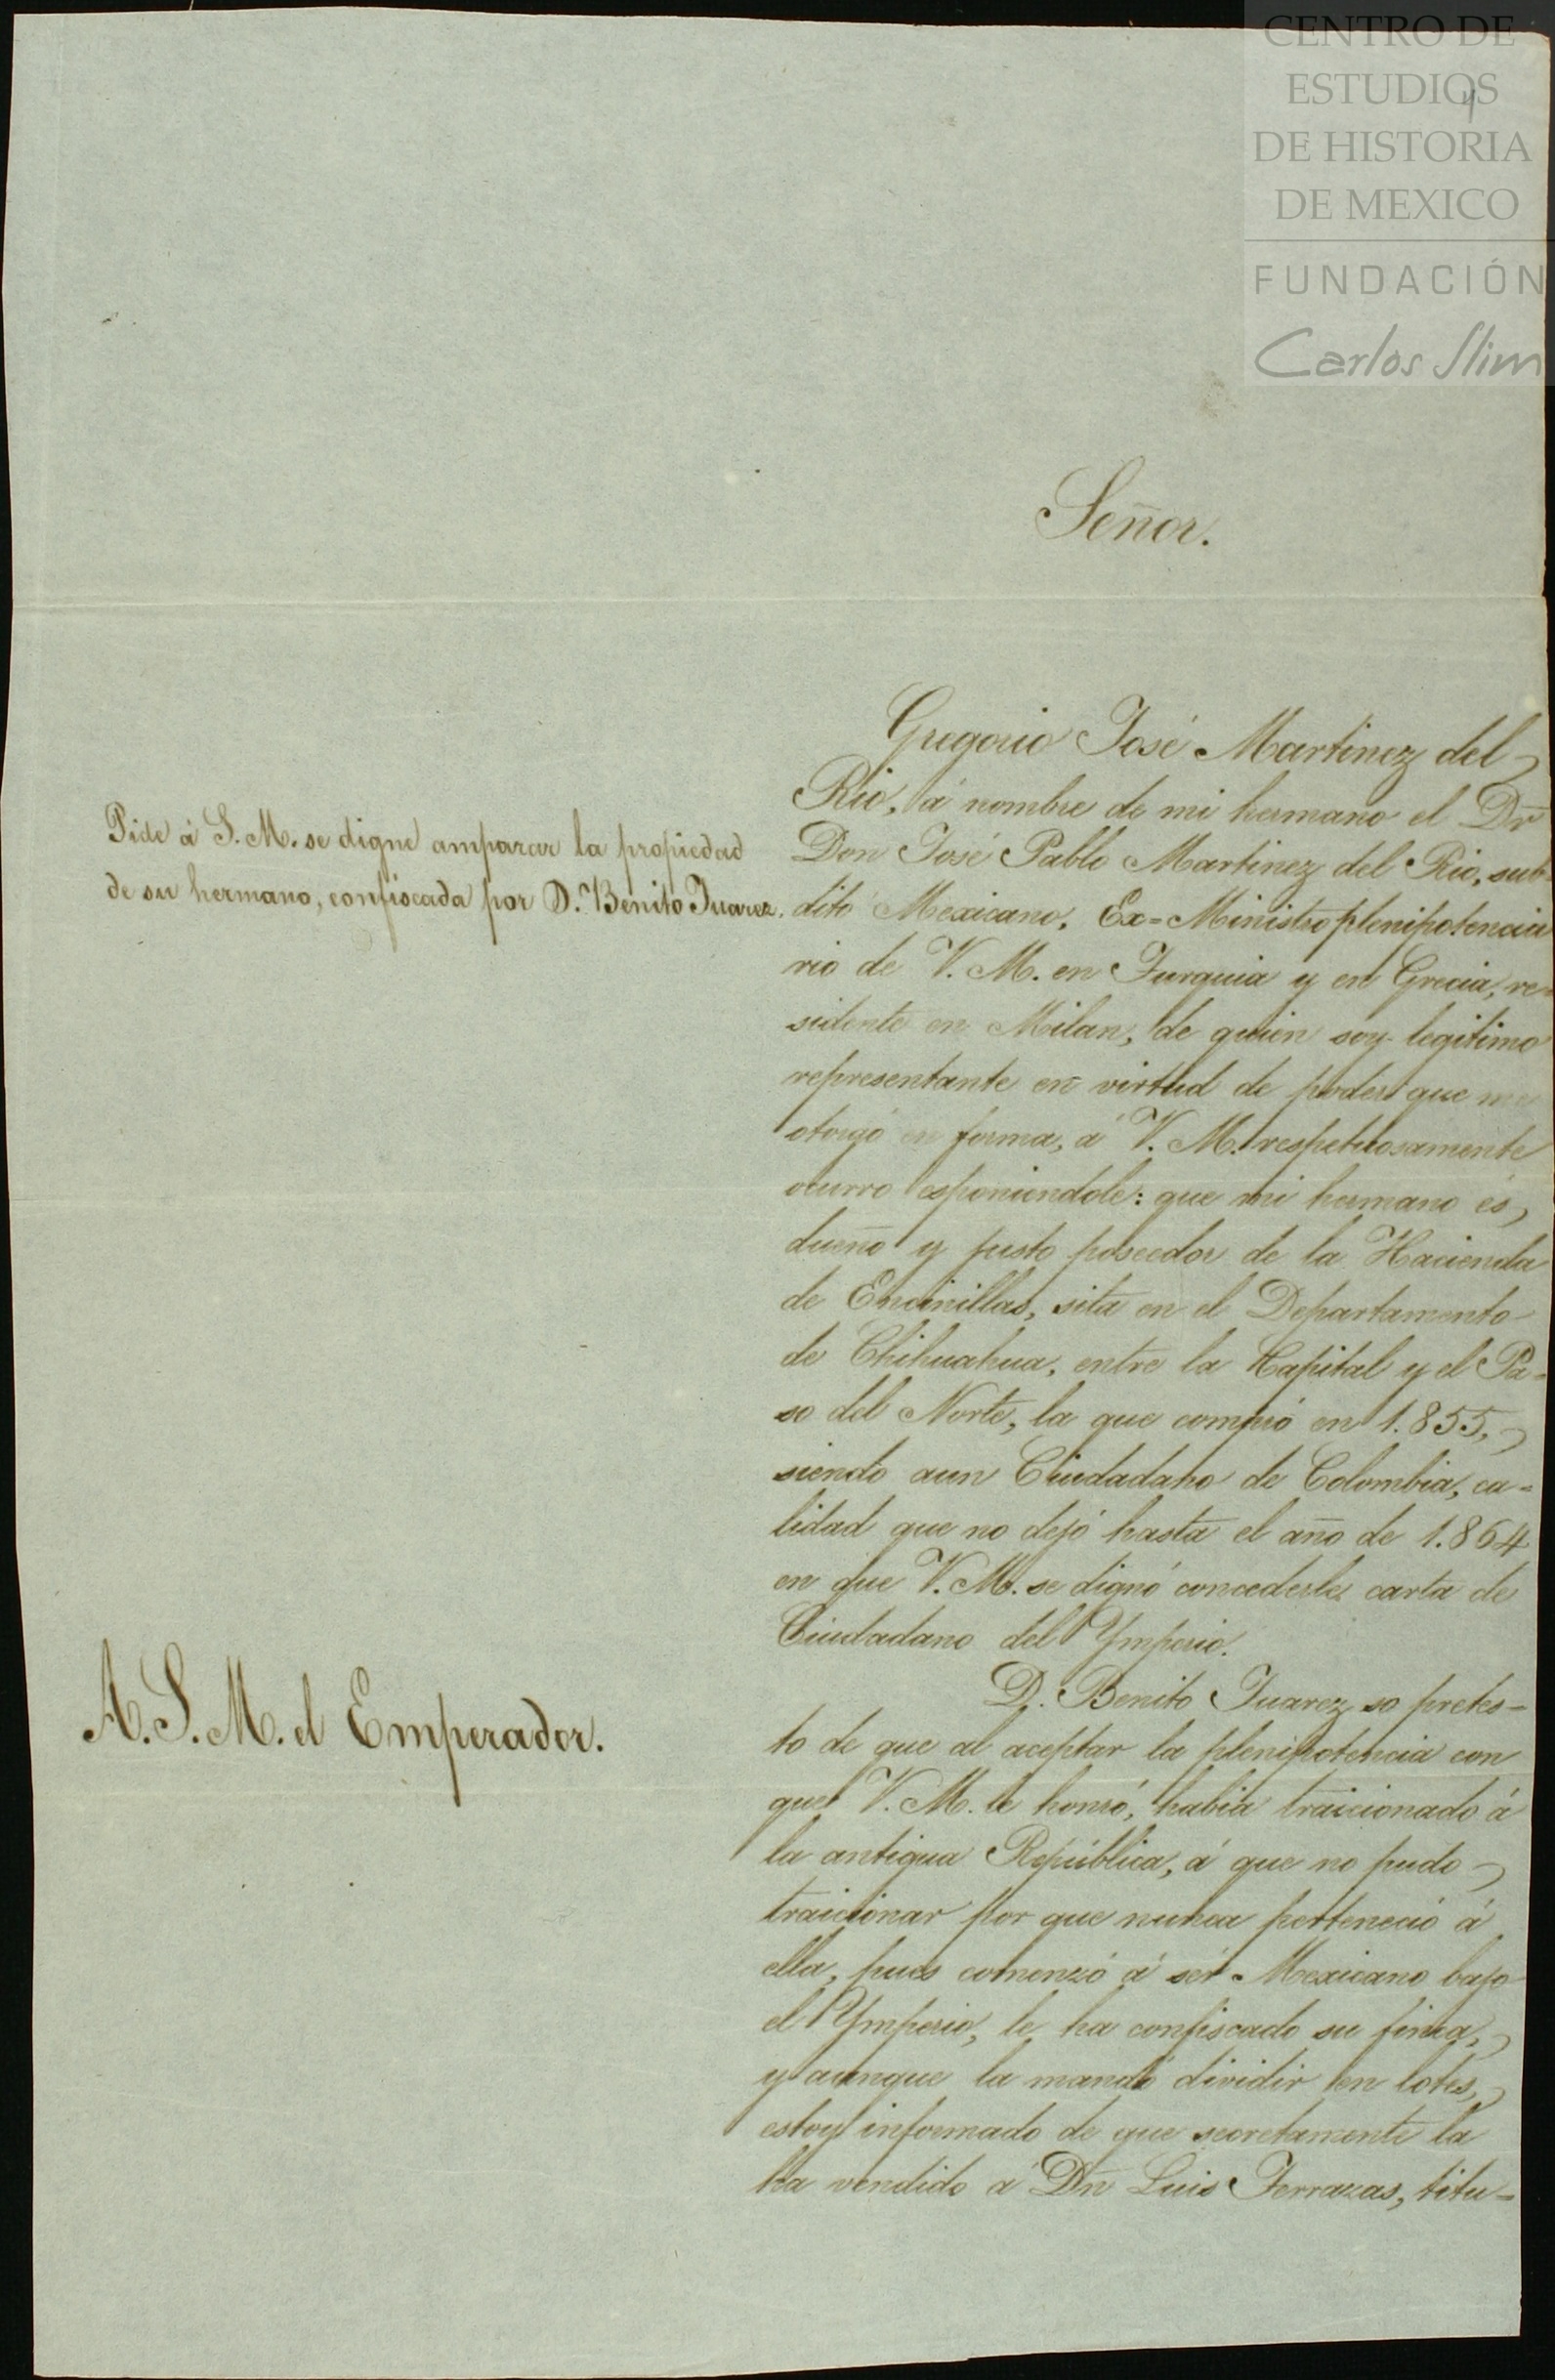 CENTRO DE
ESTUDIOS
DE HISTORIA
DE MEXICO
FUNDACIÓN
Carlos Slim
Señor.
Pide á S. M. se digne amparar la propiedad
de su hermano, confiscada por D. Benito Juarez.
A. S. M. el Emperador.
Gregorio José Martinez del
Rio, á nombre de mi hermano el Dr
Don José Pablo Martinez del Rio, sub-
dito Mexicano, Ex=Ministro plenipotencia
rio de V. M. en Turquia y en Grecia, re=
sidente en Milan, de quien soy legitimo
representante en virtud de poder que me
otorgó en forma, á V. M. respetuosamente
ocurro esponiendole: que mi hermano és
dueño y justo poseedor de la Hacienda
de Encinillas, sita en el Departamento
de Chihuahua, entre la Capital y el Pa=
so del Norte, la que compró en 1.855,
siendo aun Ciudadano de Colombia, ca=
lidad que no dejó hasta el año de 1.864
en que V. M. se dignó concederle carta de
Ciudadano del Ymperio.
D. Benito Juarez so pretes=
to de que al aceptar la plenipotencia con
que V. M. le honró, habia traicionado á
la antigua República, á que no pudo
traicionar por que nunca perteneció á
ella, pues comenzó á sér Mexicano bajo
el Ymperio, le ha confiscado su finca,
y aunque la mandó dividir en lotes,
estoy informado de que secretamente la
ha vendido á Dn Luis Terrazas, titu=